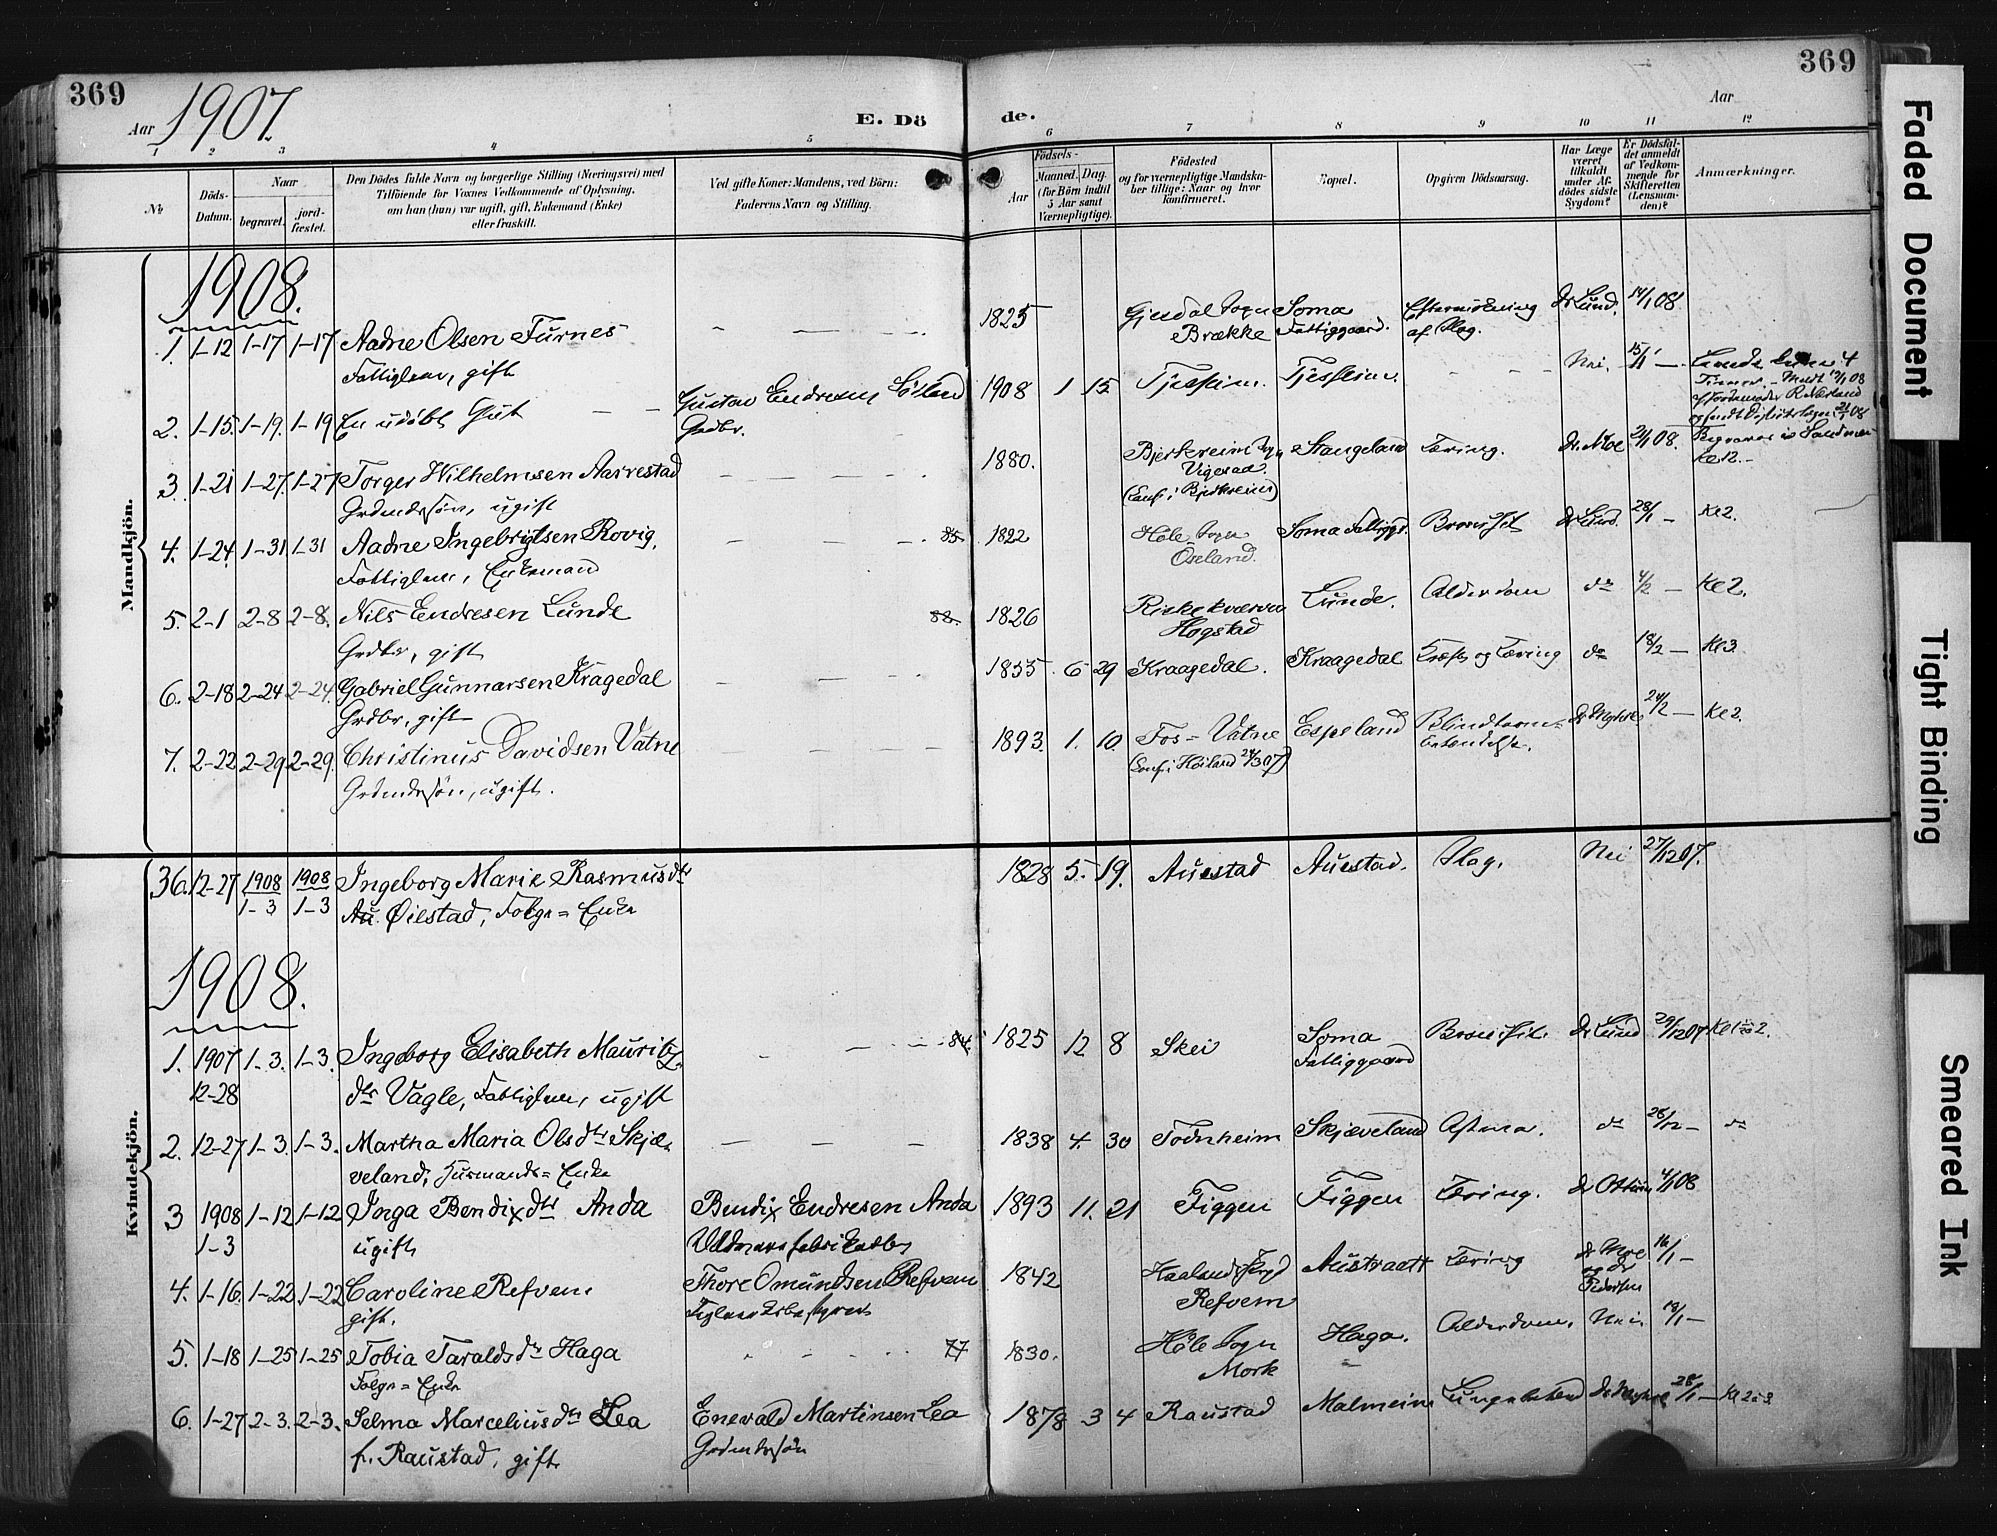 369
Aar 1907.
E. Dö
de.
Aar
369
1 2 3 4 5 6 7 8 9 10 11 12
№
Döds-
Datum.
Naar
begravet.
jord-
fæstet.
Den Dödes fulde Navn og borgerlige Stilling (Næringsvei) med
Tilföiende for Voxnes Vedkommende af Oplysning,
om han (hun) var ugift, gift, Enkemand (Enke)
eller fraskilt.
Ved gifte Koner: Mandens, ved Börn:
Faderens Navn og Stilling.
Födsels-
Aar
Maaned. Dag.
(for Börn indtil
5 Aar samt
Værnepligtige).
Födested
og for værnepligtige Mandska-
ber tillige: Naar og hvor
konfirmeret.
Bopæl.
Opgiven Dödsaarsag.
Har Læge
været
tilkaldt
under Af-
dödes sidste
Sygdom?
Er Dödsfal-
det anmeldt
af Vedkom-
mende for
Skifteretten
(Lensman-
den)?
Anmærkninger.
Mandkjön.
1908.
1. 1-12 1-17 1-17 Aadne Olsen Furnes 1825 Gjesdal Sogn Soma Eftervirkning dr Lund. 14/1 08.
Fattiglem, gift Brække Fattiggaard. af Slag.
2. 1-15. 1-19. 1-19 En udöbt Gut Gustav Endresen 1908 1 15 Tjessheim. Tjessheim. Nei. 15/1
Grdbr.
3. 1-21 1-27. 1-27 Torger Wilhelmsen Aarrestad 1880. Bjerkreim Sogn Stangeland Tæring. dr Moe 21/1 08.
Grdmdssön, ugift (Conf. i Bjerkreim)
4. 1-24. 1-31 1-31 Aadne Ingebrigtsen Rovig, 85 1822 Höle Sogn Soma Fattiggd. dr Lund. 28/1 Kl 2.
Fattiglem, Enkemand Oseland.
5. 2-1 2-8 2-8. Nils Endresen Lunde 82. 1826 Lunde. Alderdom do 4/2 Kl 2.
Grdbr, gift Hogstad
6. 2-18 2-24 2-24. Gabriel Gunnarsen Kragedal 1855 6 29 Kraagedal. Kraagedal Kræft og Tæring do 18/2 Kl 3.
Grdbr, gift
7. 2-22 2-29 2-29. Christinus Davidsen Vatne 1893. 1. 10. Fos-Vatne Espeland Blindtarm- 24/2 Kl 2.
Grdmdssön, ugift. (Conf. i Höiland 24/3 07) betendelse.
Kvindekjön.
36. 12-27 1908 1908 Ingeborg Marie Rasmusdtr 1828 5. 19. Auestad Auestad. Slag. Nei 27/12 07.
1-3 1-3 Au. Öiestad, Folge=Enke
1908.
1. 1907 1-3. 1-3. Ingeborg Elisabeth Mauritz 84. 1825 12 8 Skei Soma dr Lund 29/12 07
12-28 dtr Vagle, Fattiglem, ugift Fattiggaard
2. 12-27 1-3. 1-3. Martha Maria Olsdtr Skjæ- 1838 4. 30 Todnheim Skjæveland Astma. do 28/12 do
veland, Husmands=Enke
3 1908 1-12 1-12 Inga Bendixdtr Anda Bendix Endresen Anda 1893 11. 21 Figgen Figgen Tæring. 4/1 08
1-3 ugift
4. 1-16. 1-22 1-22 Caroline Refvem Thore Omundsen Refvem 1842 Austraatt Tæring dr Moe 16/1
gift. Refvem og dr Pedersen
5. 1-18 1-25 1-25 Tobia Taraldsdtr Haga 77 1830. Höle Sogn Haga. Alderdom. Nei. 18/1
Folge=Enke Mork
6. 1-27 2-3. 2-3. Selma Marceliusdtr Lea Enevald Martinsen Lea 1878 3 4 Raustad Malmeim 28/1 Kl 2 à 3
f. Raustad, gift Grdmdssön
Faded Document
Tight Binding
Smeared Ink